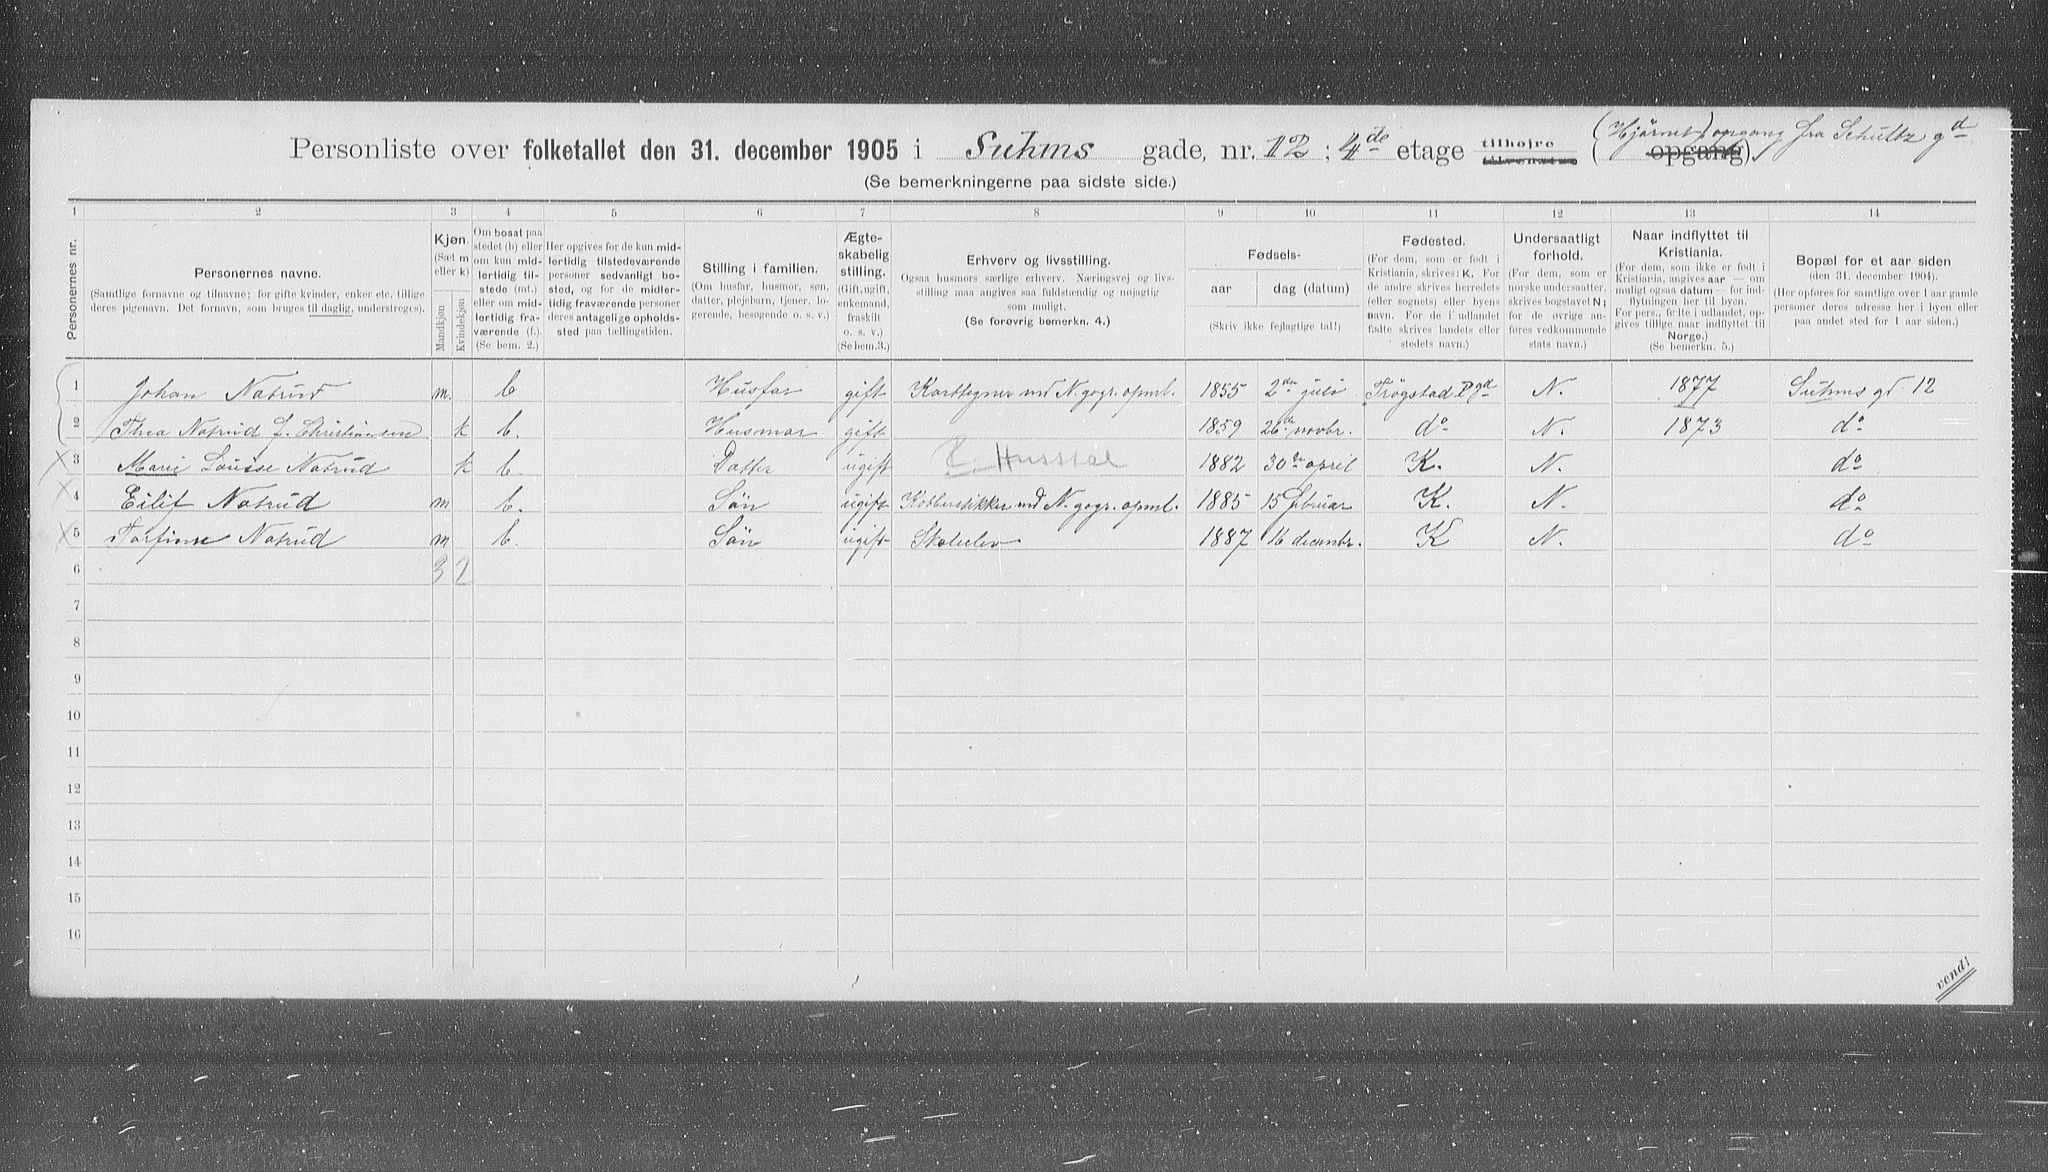 Personliste over folketallet den 31. december 1905 i Suhms gade, nr. 12; 4de etage tilhøjre (opgang)
(Hjørnet) opgang fra Schultz gd
(Se bemerkningerne paa sidste side.)
1 2 3 4 5 6 7 8 9 10 11 12 13 14
Personernes nr.
Personernes navne.
(Samtlige fornavne og tilnavne; for gifte kvinder, enker etc. tillige
deres pigenavn. Det fornavn, som bruges til daglig, understreges).
Kjøn.
(Sæt m
eller k)
Mandkjøn
Kvindekjøn
Om bosat paa
stedet (b) eller
om kun mid-
lertidig til-
stede (mt.)
eller om mid-
lertidig fra-
værende (f.).
(Se bem. 2.)
Her opgives for de kun mid-
lertidig tilstedeværende
personer sedvanlig bo-
sted, og for de midler-
tidig fraværende personer
deres antagelige opholds-
sted paa tællingstiden.
Stilling i familien.
(Om husfar, husmor, søn,
datter, plejebarn, tjener, lo-
gerende, besøgende o. s. v.)
Ægte-
skabelig
stilling.
(Gift, ugift,
enkemand,
fraskilt
o. s. v.)
(Se bem.3.)
Erhverv og livsstilling.
Ogsaa husmors særlige erhverv. Næringsvej og livs-
stilling maa angives saa fuldstændig og nøjagtig
som muligt.
(Se forøvrig bemerkn. 4.)
Fødsels-
aar dag (datum)
(Skriv ikke fejlagtige tal!)
Fødested.
(For dem, som er født i
Kristiania, skrives: K. For
de andre skrives herredets
(eller sognets) eller byens
navn. For de i udlandet
fødte skrives landets eller
stedets navn.)
Undersaatligt
forhold.
(For dem, som er
norske undersaatter,
skrives bogstavet N;
for de øvrige an-
føres vedkommende
stats navn.)
Naar indflyttet til
Kristiania.
(For dem, som ikke er født i
Kristiania, angives aar — om
muligt ogsaa datum — for ind-
flytningen her til byen.
For pers., fødte i udlandet, op-
gives tillige naar indflyttet til
Norge.)
(Se bemerkn. 5.)
Bopæl for et aar siden
(den 31. december 1904).
(Her opføres for samtlige over 1 aar gamle
personer deres adresse her i byen eller
paa andet sted for 1 aar siden.)
1 Johan Natrud m. b Husfar gift Karttegner ved N. gogr. opml. 1855 2den juli Trøgstad Pgd N. 1877 Suhms gd 12
2 Thea Natrud f. Christiansen k b. Husmor gift 1859 26de novbr. do N. 1873 do
3 Marie Louise Natrud k b. Datter ugift Husstel 1882 30te april K. N. do
4 Eilif Natrud m b. Søn ugift Kobberstikker ved N. gogr. opml. 1885 15 februar K. N. do
5 Torfinn Natrud m b. Søn ugift Skoleelev 1887 16 decembr. K N. do
6 3 2
7
8
9
10
11
12
13
14
15
16
vend!